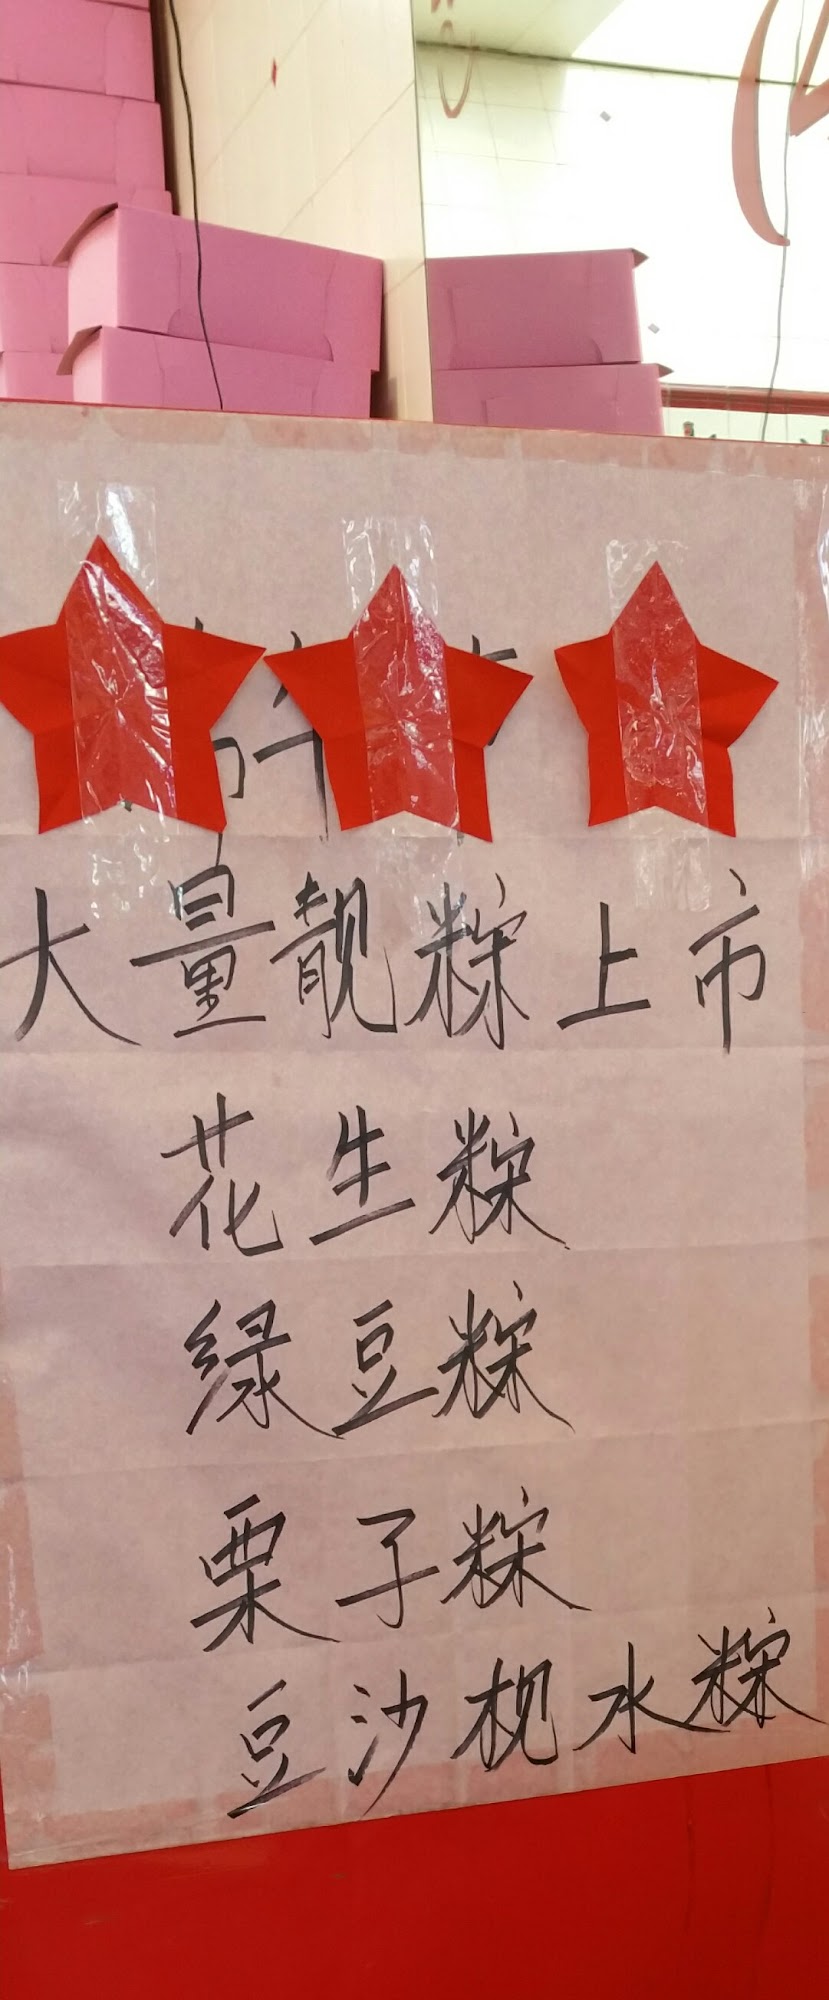 大量靓粽上市
花生粽
绿豆粽
栗子粽
豆沙枧水粽